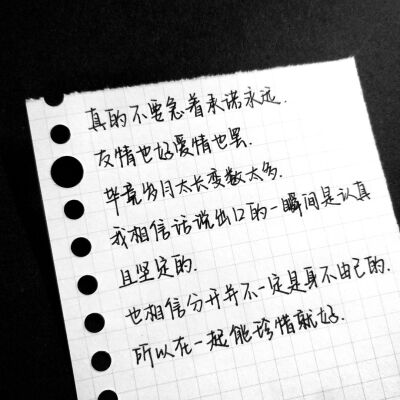 真的不要急着承诺永远.
友情也好爱情也罢.
毕竟岁月太长变数太多.
我相信话说出口的一瞬间是认真
且坚定的.
也相信分开并不一定是身不由己的.
所以在一起能珍惜就好.